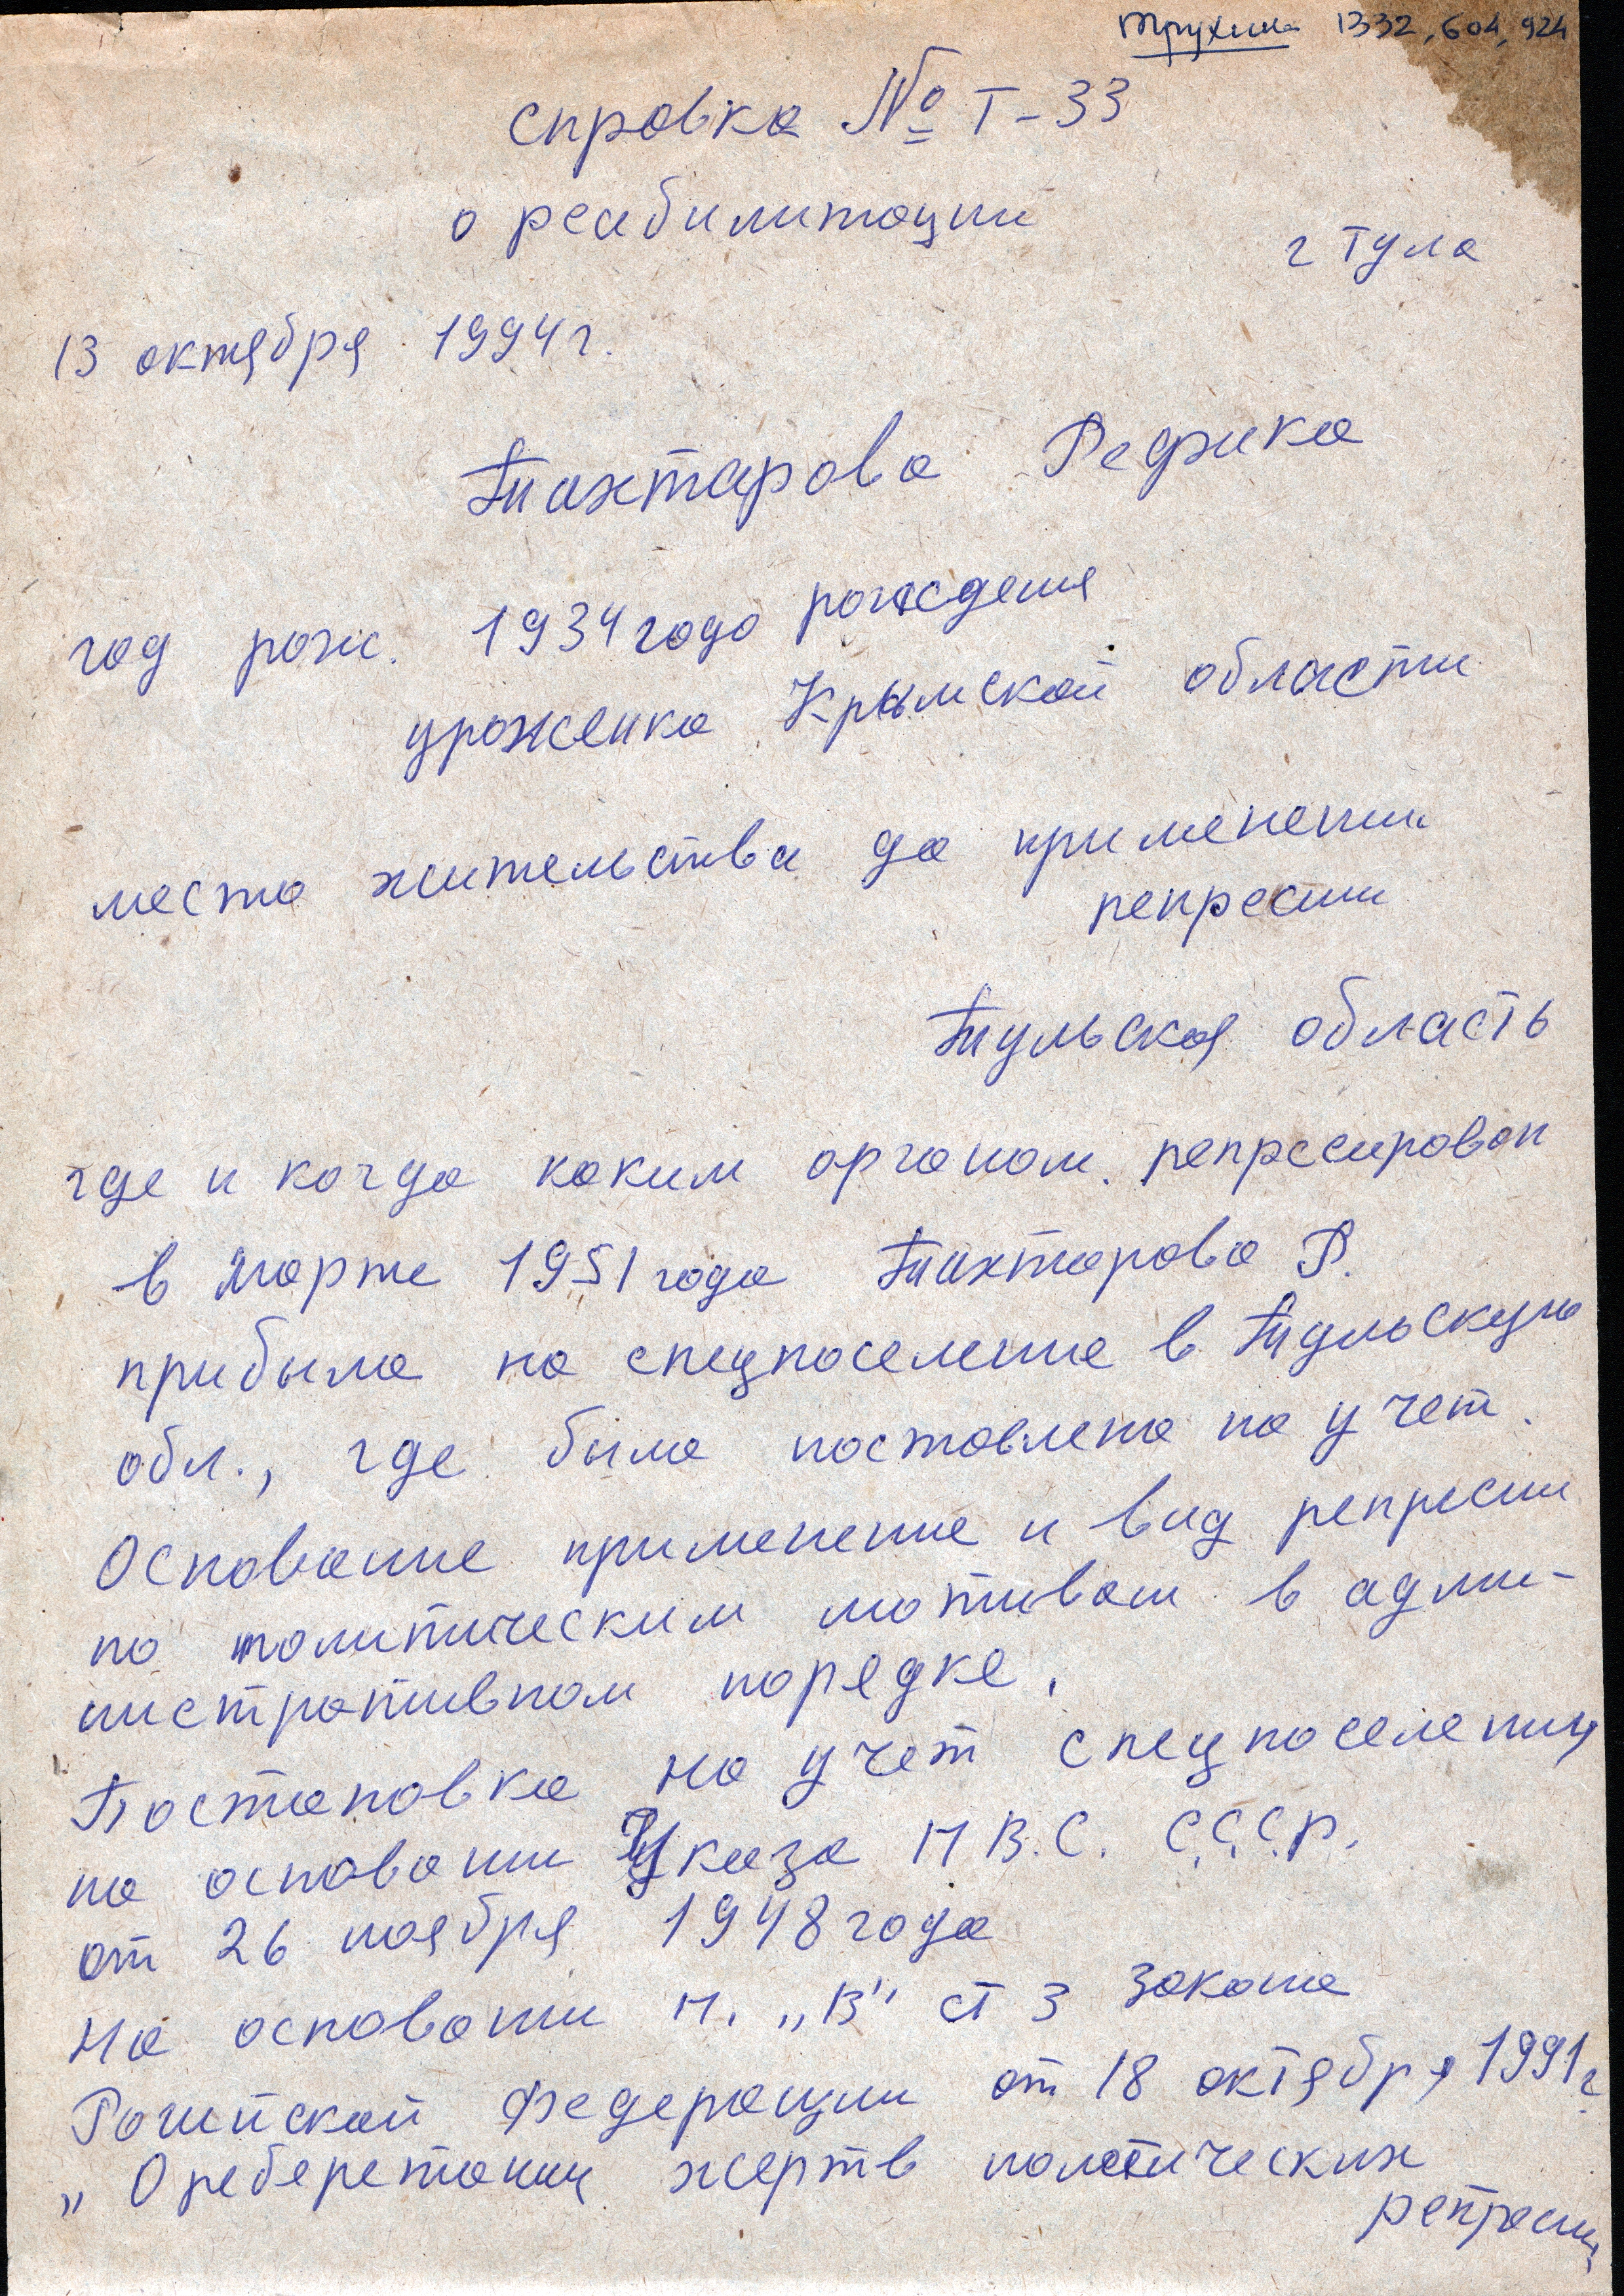 Трухина 1332, 604, 924
справка № Т-33
о реабилитации
г Тула
13 октября 1994 г.
Тихтарова Рефика
год рож. 1934 года рождения
уроженка Крымской области
место жительства до применении
репресии
Тульская область
где и когда каким органом. репресирован
в марте 1951 года Тихтарова Р.
прибыла на спецпоселение в Тульскую
обл., где была поставлена на учет.
Основание применение и вид репресии
по политическим мотивам в адми-
нистративном порядке.
Постановка на учет спецпоселения
на основании Указа П В. С. С.С.С.Р.
от 26 ноября 1948 года
На основании п. „В" ст 3 закона
Российской Федерации от 18 октября 1991 г.
„О жертв политических
репресии